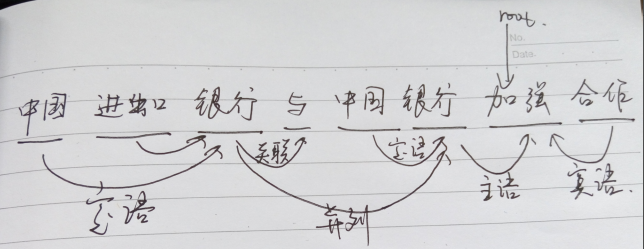 root.
No.
Date.
中国 进出口 银行 与 中国 银行 加强 合作
关联 定语
定语 并列 主语 宾语.